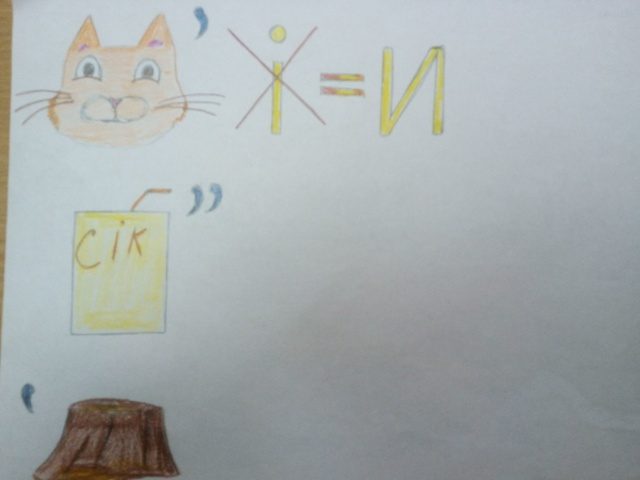 ’ і = И
сік ’’
‘